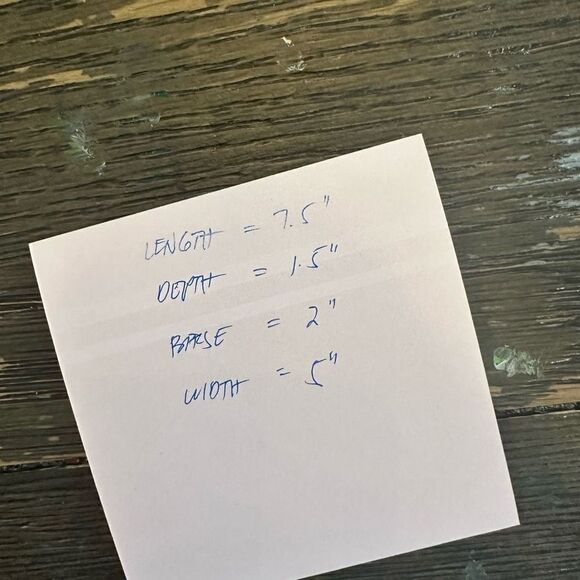 LENGTH = 7.5"
DEPTH = 1.5"
BASE = 2"
WIDTH = 5"